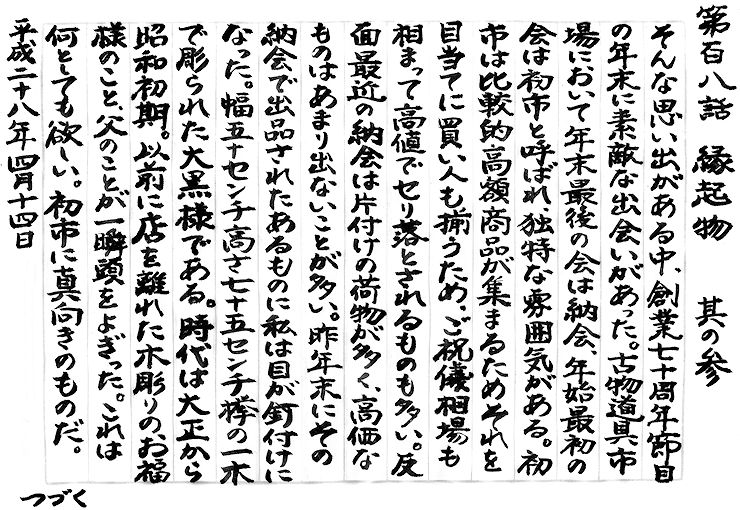 第百八話 縁起物 其の参
そんな思い出がある中、創業七十周年節目
の年末に素敵な出会いがあった。古物道具市
場において年末最後の会は納会、年始最初の
会は初市と呼ばれ独特な雰囲気がある。初
市は比較的高額商品が集まるためそれを
目当てに買い人も揃うため、ご祝儀相場も
相まって高値でセリ落とされるものも多い。反
面最近の納会は片付けの荷物が多く、高価な
ものはあまり出ないことが多い。昨年末にその
納会で出品されたあるものに私は目が釘付けに
なった。幅五十センチ高さ七十五センチ欅の一木
で彫られた大黒様である。時代は大正から
昭和初期。以前に店を離れた木彫りの、お福
様のこと、父のことが一瞬頭をよぎった。これは
何としても欲しい。初市に真向きのものだ。
平成二十八年四月十四日
つづく